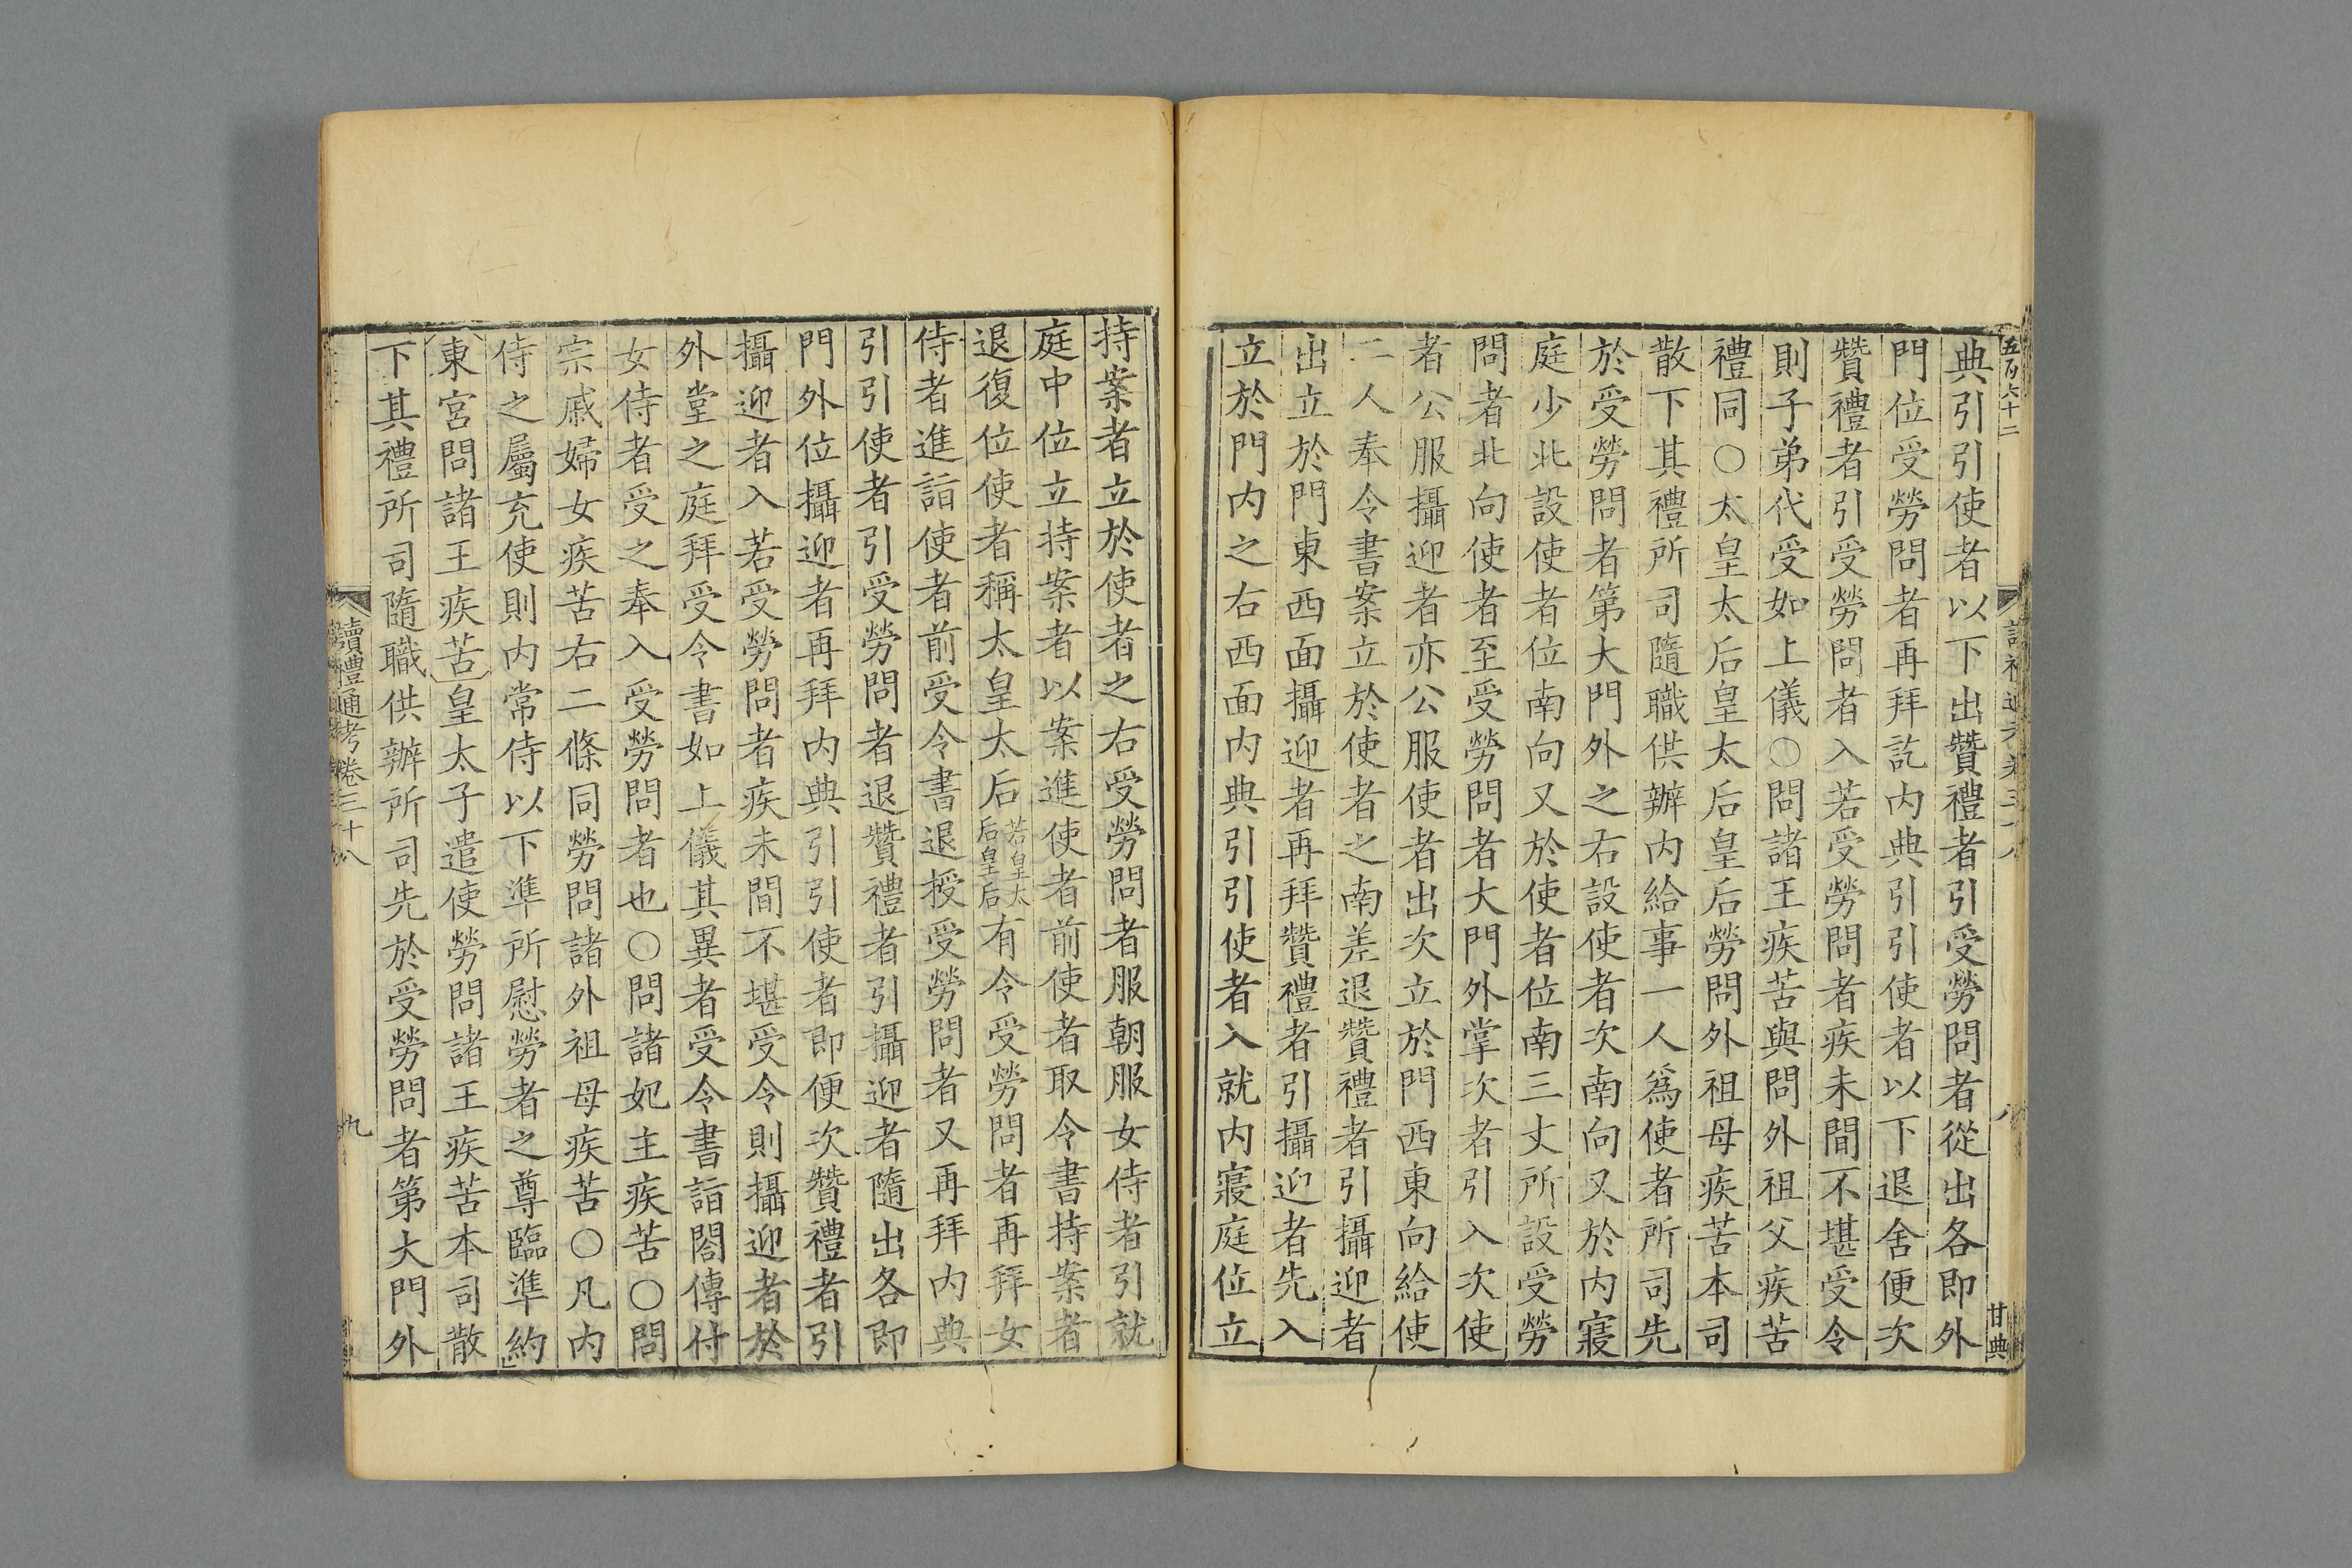 五百六十二
典引引使者以下出贊禮者引受勞問者從出各即外
門位受勞問者再拜訖內典引引使者以下退舍便次
贊禮者引受勞問者入若受勞問者疾未間不堪受令
則子弟代受如上儀○問諸王疾苦與問外祖父疾苦
禮同○太皇太后皇太后皇后勞問外祖母疾苦本司
散下其禮所司隨職供辦內給事一人爲使者所司先
於受勞問者第大門外之右設使者次南向又於內寢
庭少北設使者位南向又於使者位南三丈所設受勞
問者北向使者至受勞問者大門外掌次者引入次使
者公服攝迎者亦公服使者出次立於門西東向給使
二人奉令書案立於使者之南差退贊禮者引攝迎者
出立於門東西面攝迎者再拜贊禮者引攝迎者先入
立於門內之右西面內典引引使者入就內寢庭位立
甘典
持案者立於使者之右受勞問者服朝服女侍者引就
庭中位立持案者以案進使者前使者取令書持案者
退復位使者稱太皇太后若皇太后皇后有令受勞問者再拜女
侍者進詣使者前受令書退授受勞問者又再拜內典
引引使者引受勞問者退贊禮者引攝迎者隨出各即
門外位攝迎者再拜內典引引使者即便次贊禮者引
攝迎者入若受勞問者疾未間不堪受令則攝迎者於
外堂之庭拜受令書如上儀其異者受令書詣閤傳付
女侍者受之奉入受勞問者也○問諸妃主疾苦○問
宗戚婦女疾苦右二條同勞問諸外祖母疾苦○凡內
侍之屬充使則內常侍以下準所慰勞者之尊臨準約
東宮問諸王疾苦皇太子遣使勞問諸王疾苦本司散
下其禮所司隨職供辦所司先於受勞問者第大門外
讀禮通考卷三十八
九